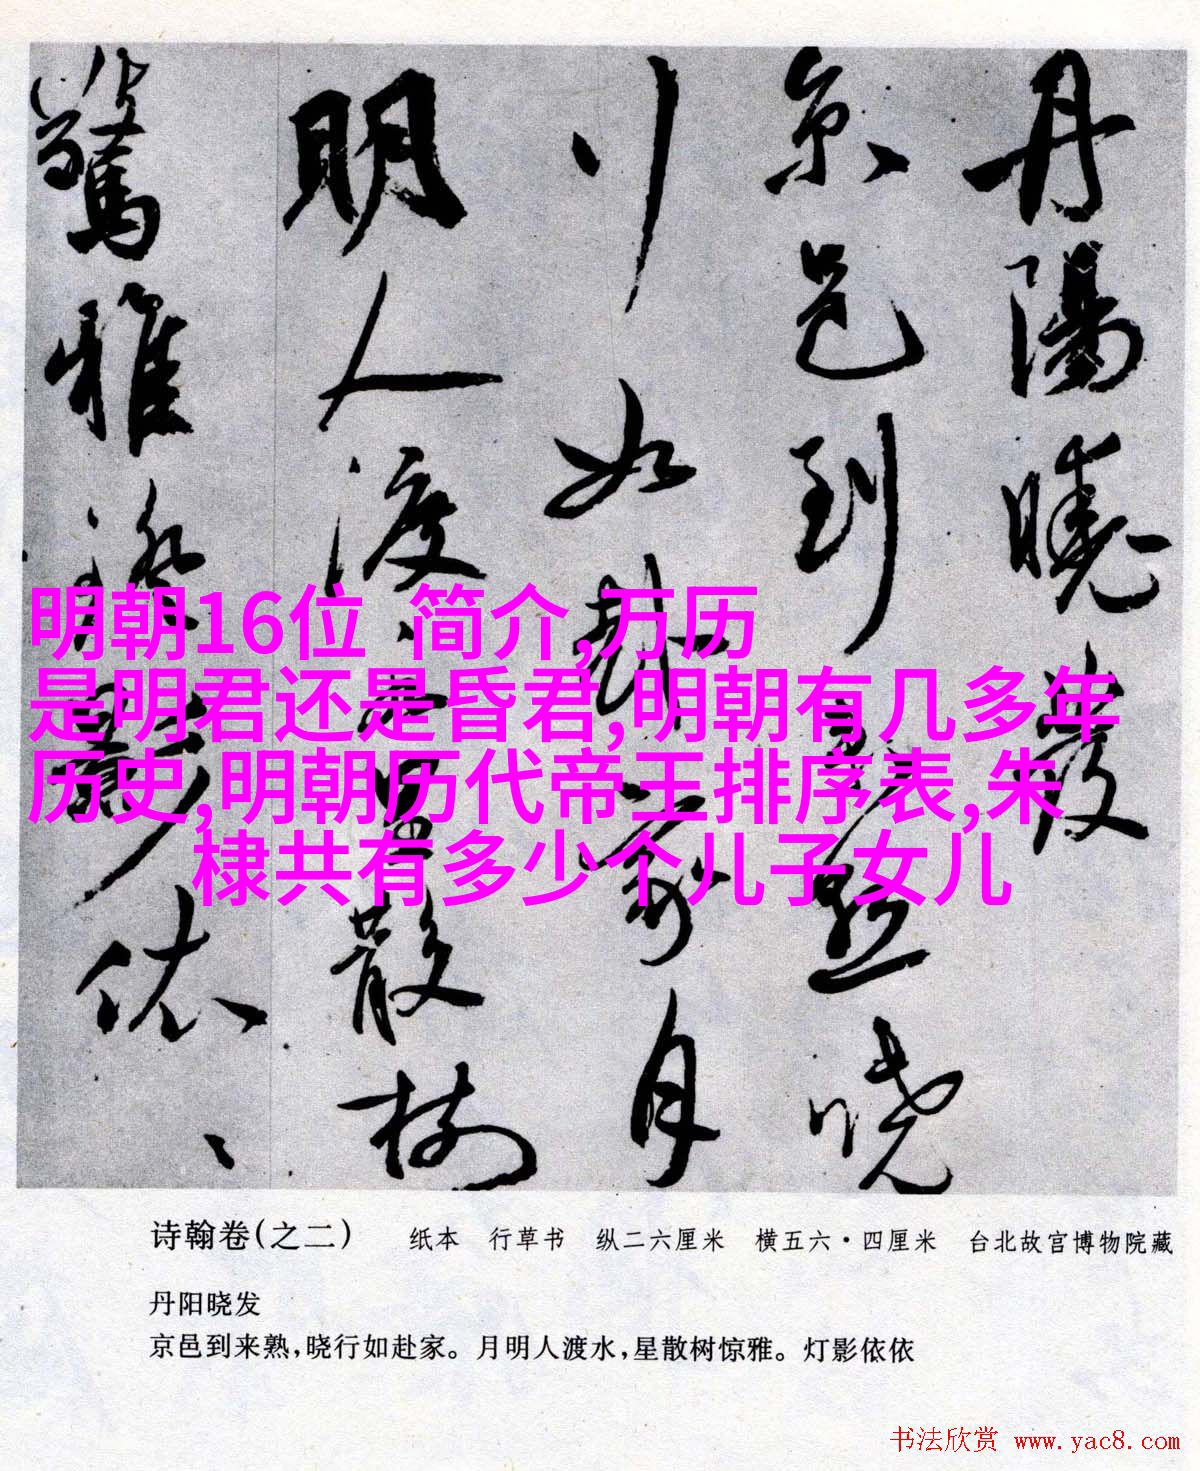 丹陽曉發
京邑到來熟曉
行如赴家月
明人渡水星散樹
驚雅
依、
明朝16位 简介,万历
是明君还是昏君,明朝有几多年
历史,明朝历代帝王排序表,朱
棣共有多少个儿子女儿
诗翰卷(之二) 纸本 行草书 纵二六厘米 横五六·四厘米 台北故宫博物院藏
丹阳晓发
京邑到来熟,晓行如赴家。月明人渡水,星散树惊雅。灯影依依
书法欣赏 www.yac8.com